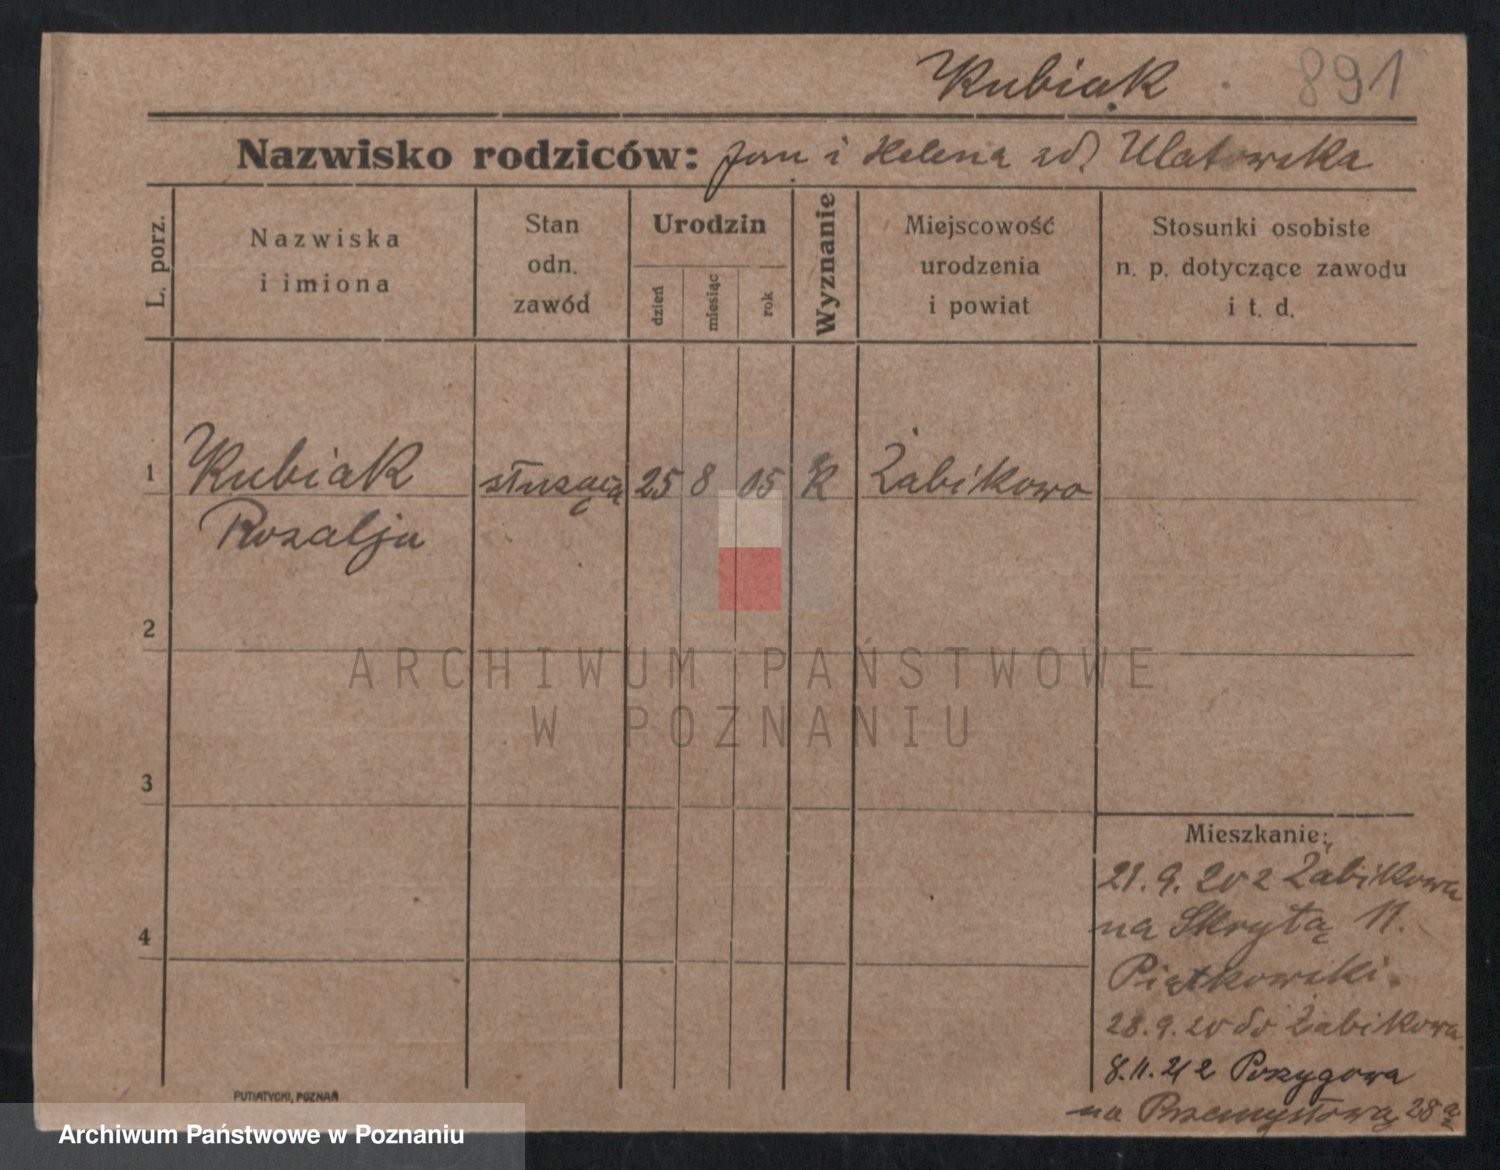 Kubiak 891
Nazwisko rodziców: Jan i Helena zd. Ulatowska
L. porz.
Nazwiska
i imiona
Stan
odn.
zawód
Urodzin
dzień
miesiąc
rok
Wyznanie
Miejscowość
urodzenia
i powiat
Stosunki osobiste
n. p. dotyczące zawodu
i t. d.
1 Kubiak służąca 25 8 05 K Żabikowo
Rozalja
2
ARCHIWUM PAŃSTWOWE
W POZNANIU
3
Mieszkanie:
21.9.20 z Żabikowa
na Skrytą 11.
Piątkowski.
4
28.9.20 do Żabikowa
8.11.21 z
na Przemysłową 28
PUTIATYCKI, POZNAŃ
Archiwum Państwowe w Poznaniu